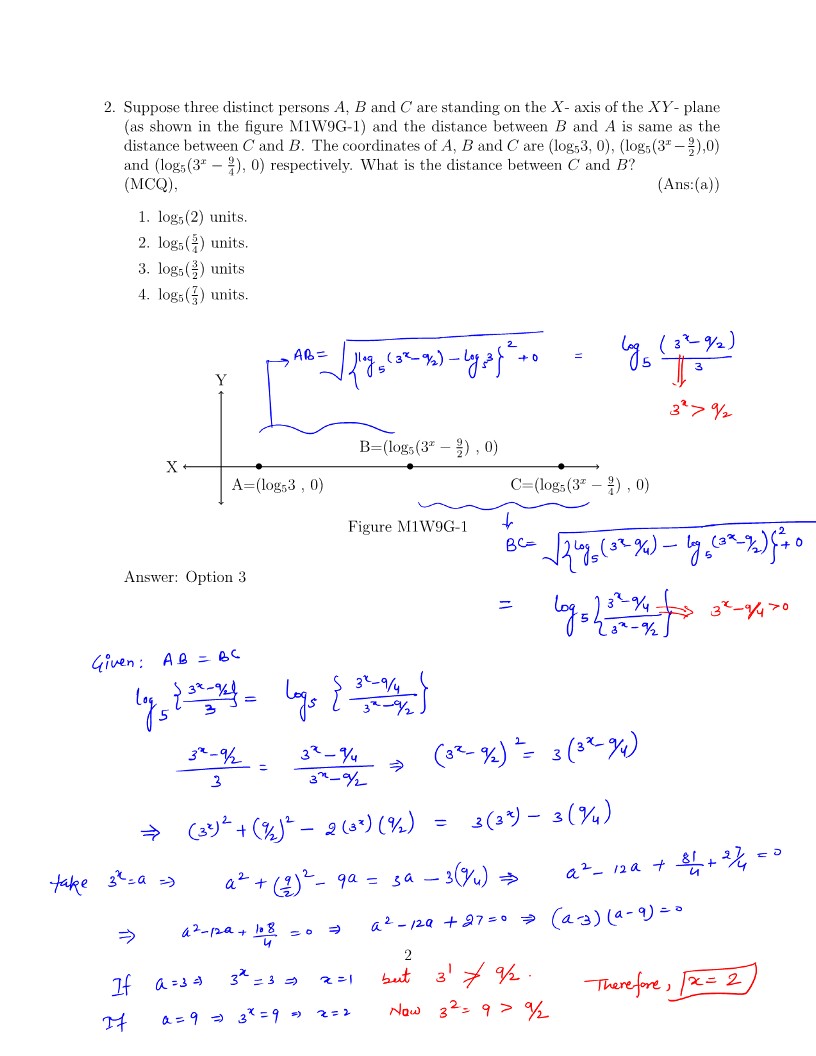 2. Suppose three distinct persons A, B and C are standing on the X- axis of the XY- plane
(as shown in the figure M1W9G-1) and the distance between B and A is same as the
distance between C and B. The coordinates of A, B and C are (log₅3, 0), (log₅(3ˣ − 9/2),0)
and (log₅(3ˣ − 9/4), 0) respectively. What is the distance between C and B?
(MCQ), (Ans:(a))
1. log₅(2) units.
2. log₅(5/4) units.
3. log₅(3/2) units
4. log₅(7/3) units.
AB = √({log₅(3ˣ−9/2) − log₅3}² + 0) = log₅ (3ˣ−9/2)/3
3ˣ > 9/2
Y
B=(log₅(3ˣ − 9/2) , 0)
X
A=(log₅3 , 0) C=(log₅(3ˣ − 9/4) , 0)
Figure M1W9G-1
BC= √({log₅(3ˣ−9/4) − log₅(3ˣ−9/2)}² + 0)
Answer: Option 3
= log₅ {(3ˣ−9/4)/(3ˣ−9/2)} ⇒ 3ˣ−9/4 > 0
Given: AB = BC
log₅ {(3ˣ−9/2)/3} = log₅ {(3ˣ−9/4)/(3ˣ−9/2)}
(3ˣ−9/2)/3 = (3ˣ−9/4)/(3ˣ−9/2) ⇒ (3ˣ−9/2)² = 3(3ˣ−9/4)
⇒ (3ˣ)² + (9/2)² − 2(3ˣ)(9/2) = 3(3ˣ) − 3(9/4)
take 3ˣ=a ⇒ a² + (9/2)² − 9a = 3a − 3(9/4) ⇒ a² − 12a + 81/4 + 27/4 = 0
⇒ a²−12a + 108/4 = 0 ⇒ a² −12a + 27 = 0 ⇒ (a−3)(a−9) = 0
2
If a=3 ⇒ 3ˣ=3 ⇒ x=1 but 3¹ ≯ 9/2. Therefore, x = 2
If a=9 ⇒ 3ˣ=9 ⇒ x=2 Now 3² = 9 > 9/2